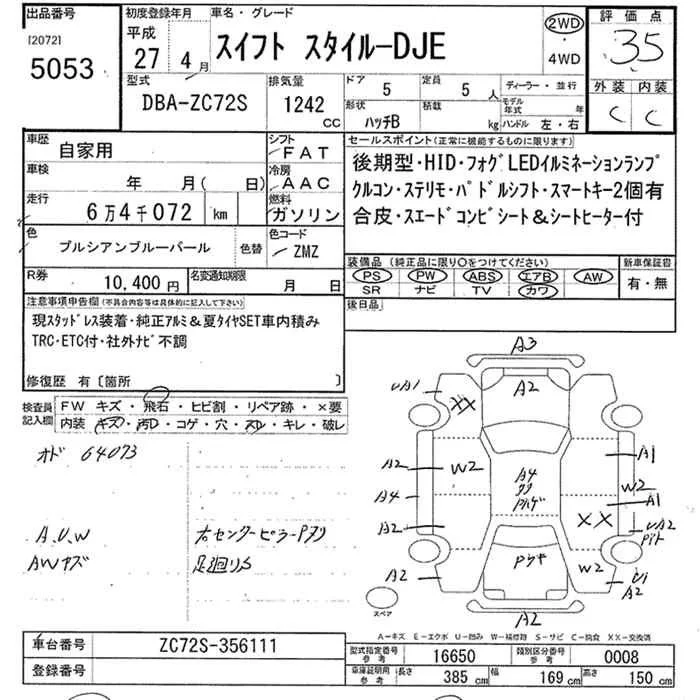 出品番号
[2072]
5053
初度登録年月
平成
27 年 4 月
車名・グレード
スイフト スタイルーDJE
2WD
4WD
評価点
3.5
外装 内装
C C
型式
DBA-ZC72S
排気量
1242
cc
ドア 5
定員 5 人
形状 ハッチB
積載 kg
ディーラー・並行
モデル年式 年
ハンドル 左・右
車歴
自家用
シフト
FAT
車検
年 月 ( 日)
冷房
AAC
走行
6万4千072 km
燃料
ガソリン
色
ブルシアンブルーパール
色替
色コード
ZMZ
R券
10,400 円
名変通知期限
月 日
セールスポイント(正常に機能するものに限ります)
後期型・HID・フォグLEDイルミネーションランプ
クルコン・ステリモ・パドルシフト・スマートキー2個有
合皮・スエードコンビシート&シートヒーター付
装備品 (純正品に限り○をつけてください)
PS PW ABS エアB AW
SR ナビ TV カワ
新車保証書
有・無
後日品
注意事項申告欄(不具合内容等は具体的に記入して下さい)
現スタッドレス装着・純正アルミ&夏タイヤSET車内積み
TRC・ETC付・社外ナビ不調
修復歴 有〔箇所 〕
検査員記入欄
FW キズ・飛石・ヒビ割・リペア跡・×要
内装 キズ・汚レ・コゲ・穴・スレ・キレ・破レ
オド 64073
A.U.W
AWキズ
右センターピラーPアリ
足廻りサビ
A3
UA1
A2
XX
A2
W2
A1
A4
W2
A4
A1
A2
XX
UA2
A2
W2
U1
A2
A2
スペア
A-キズ E-エクボ U-凹み W-補修跡 S-サビ C-腐食 XX-交換済
車台番号
ZC72S-356111
登録番号
型式指定番号
参考
16650
類別区分番号
参考
0008
車庫証明用
参考
長さ 385 cm
幅 169 cm
高さ 150 cm